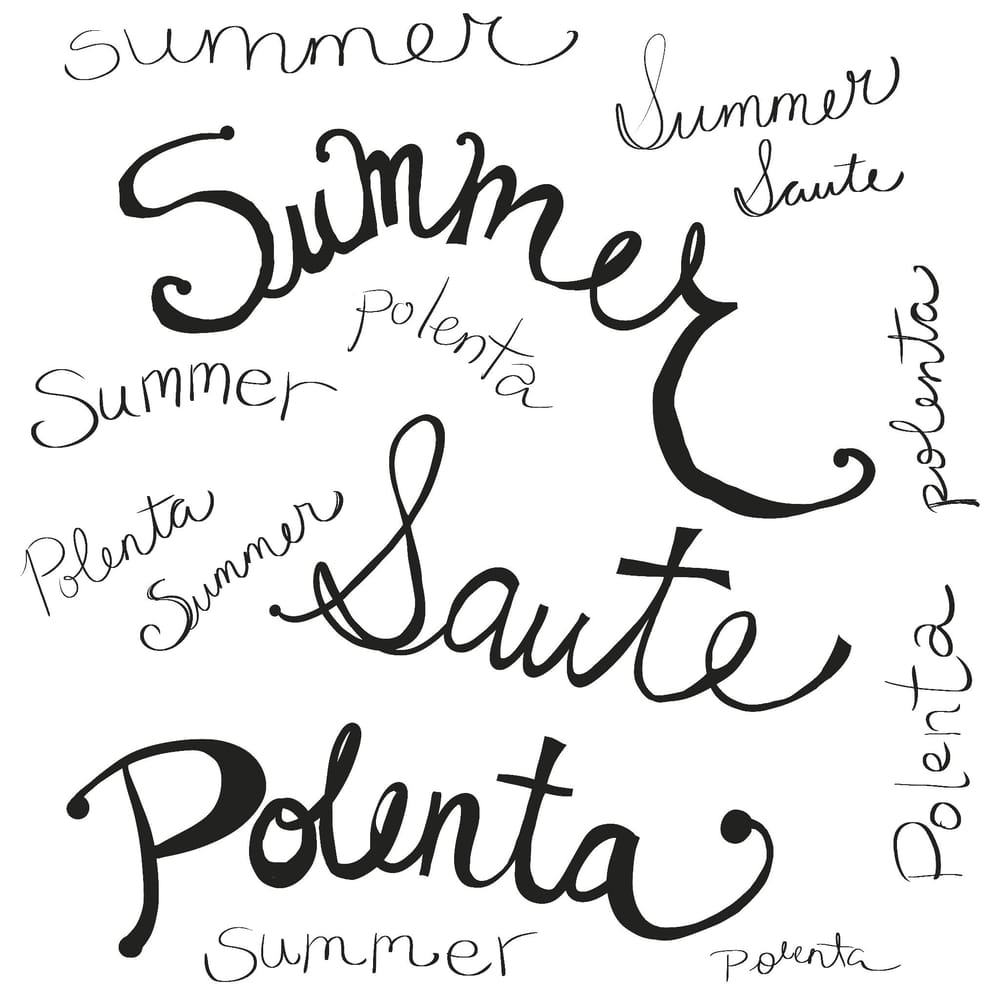 summer
Summer
Saute
Summer
polenta
polenta
Summer
Saute
Polenta
Summer
Polenta
Polenta
Summer
Polenta